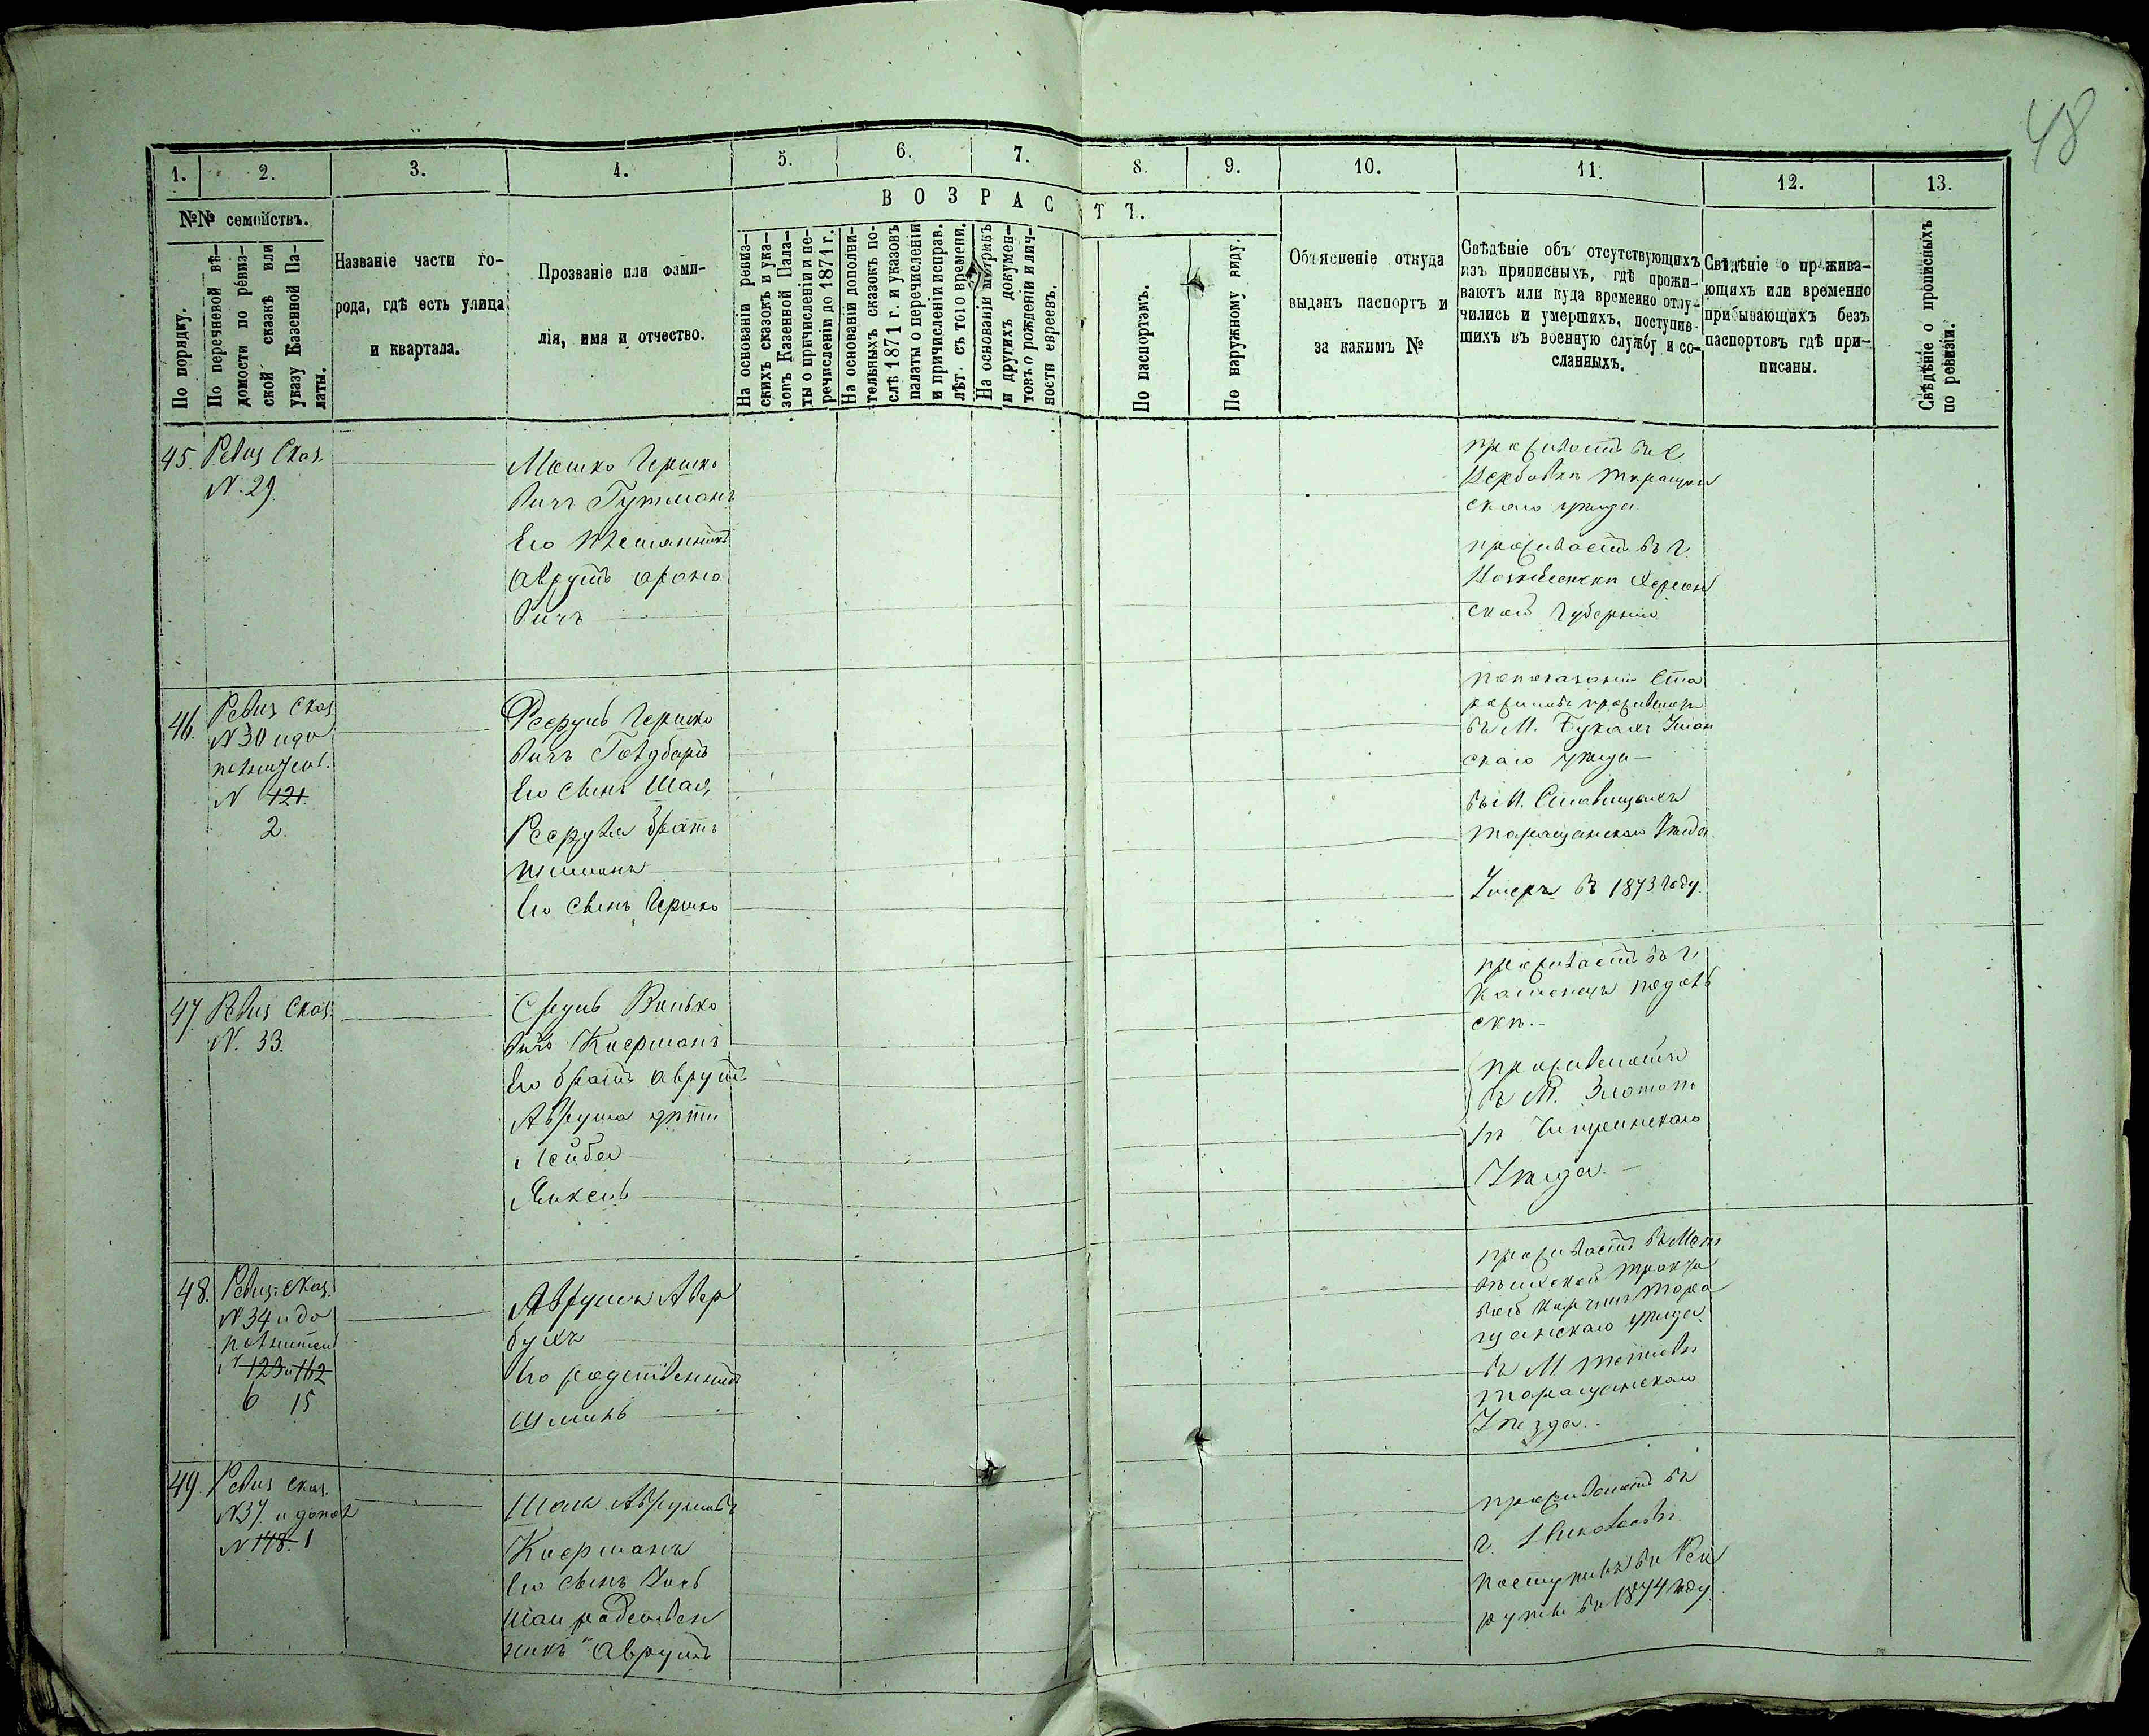 48
1. 2. 3. 4. 5. 6. 7. 8. 9. 10. 11. 12. 13.
№№ семействъ.
ВОЗРАСТЪ.
По порядку.
По перечневой вѣ-
домости по ревиз-
ской сказкѣ или
указу Казенной Па-
латы.
Названіе части го-
рода, гдѣ есть улица
и квартала.
Прозваніе или фами-
лія, имя и отчество.
На основаніи ревиз-
скихъ сказокъ и ука-
зовъ Казенной Пала-
ты о причисленіи и пе-
речисленіи до 1871 г.
На основаніи дополни-
тельныхъ сказокъ по-
слѣ 1871 г. и указовъ
палаты о перечисленіи
и причисленіи исправ.
лѣт. съ того времени.
На основаніи метрикъ
и другихъ докумен-
товъ о рожденіи и лич-
ности евреевъ.
По паспортамъ.
По наружному виду.
Объясненіе откуда
выданъ паспортъ и
за какимъ №
Свѣдѣніе объ отсутствующихъ
изъ приписныхъ, гдѣ прожи-
ваютъ или куда временно отлу-
чились и умершихъ, поступив-
шихъ въ военную службу и со-
сланныхъ.
Свѣдѣніе о прожива-
ющихъ или временно
прибывающихъ безъ
паспортовъ гдѣ при-
писаны.
Свѣдѣніе о прописныхъ
по ревизіи.
45. Ревиз Сказ.
N. 29.
Мошко Гершко
вичъ Гутманъ
Его племянникъ
Аврумъ Ароно
вичъ
проживаетъ въ с.
Таращан
скаго уѣзда
проживаетъ въ г.
Вознесенскѣ Херсон
ской Губерніи
46. Ревиз Сказ
N 30 и до
полнител.
N 121.
2.
Гершко
вичъ Голдбартъ
Его сынъ Шая,
братъ
Шимонъ
Его сынъ Гершко
по показанію Ста
въ М. Букахъ Уман
скаго уѣзда
въ М. Ставищахъ
Таращанскаго Уѣзда.
Умеръ въ 1873 году.
47. Ревиз Сказ.
N. 33.
Сруль Волько
вичъ Коерманъ
Его братъ Аврумъ
Аврума дѣти
Лейба
Янкель
проживаетъ въ г.
Каменецъ Подоль
скѣ.
проживаютъ
въ М. Златопо
лѣ Чигиринскаго
Уѣзда.
48. Ревиз. Сказ.
N 34 и до
полнител
N 123 и 112
6 15
Аврумъ Авер
бухъ
Его родственникъ
Шмиль
проживаетъ въ
Тара
щанскаго уѣзда.
въ М. Тетіевѣ
Таращанскаго
Уѣзда.
49. Ревиз Сказ.
N 37. и допол
N 118. 1
Шая Аврумовъ
Коерманъ
Его сынъ
Шаи родствен
никъ Аврумъ
проживаютъ въ
г. Николаевѣ
поступилъ въ Рек
руты въ 1874 году.